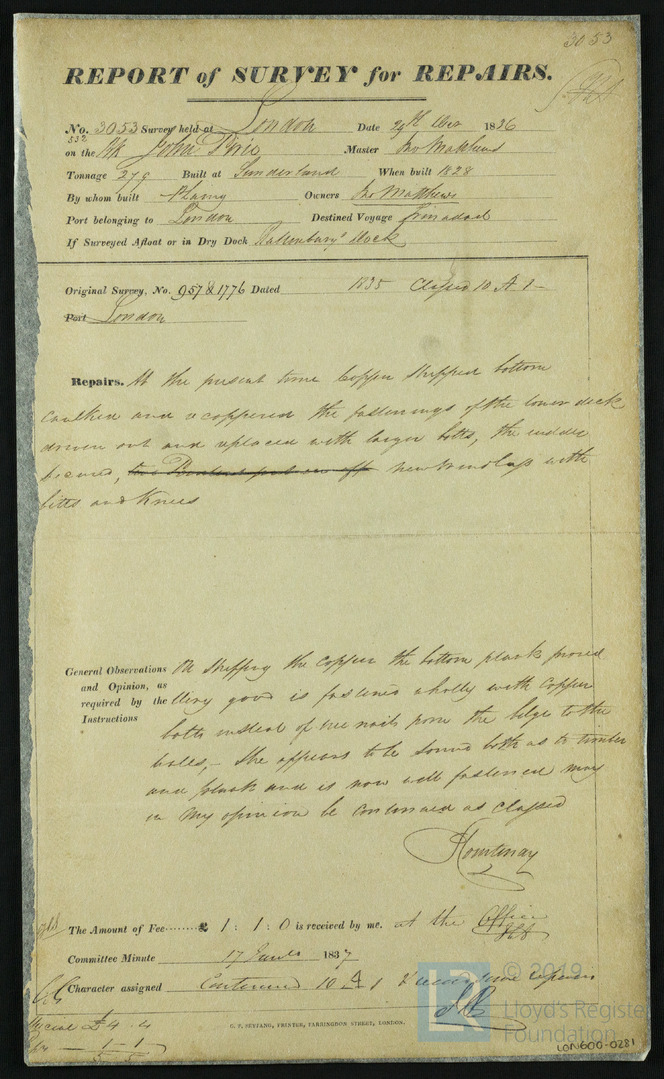 3053
REPORT of SURVEY for REPAIRS.
No. 3053 Survey held at London Date 29th Decr 1836
532
on the Bk John Master Matthews
Tonnage 279 Built at Sunderland When built 1828
By whom built Owners Matthews
Port belonging to London Destined Voyage Trinadad
If Surveyed Afloat or in Dry Dock Dock
Original Survey, No. 957 & 1776 Dated 1835 Classed 10 A 1
Port London
Repairs. At the present time Copper stripped bottom
caulked and recoppered the fastenings of the lower deck
driven out and replaced with larger bolts, the rudder
new windlass with
bitts and Knees
General Observations and Opinion, as required by the Instructions
On stripping the copper the bottom plank proved
very good is fastened wholly with Copper
bolts instead of treenails from the bilge to the
wales, - She appears to be sound both as to timber
and plank and is now well fastened may
in my opinion be continued as classed
Courtenay
The Amount of Fee £ 1 : 1 : 0 is received by me. at the Office
Committee Minute 17 1837
Character assigned Continued 10 A 1 & record some repairs
Special £4 . 4
1 - 1
5 . 5
PRINTER, FARRINGDON STREET, LONDON.
© 2019
Lloyd's Register
Foundation
LON600-0281